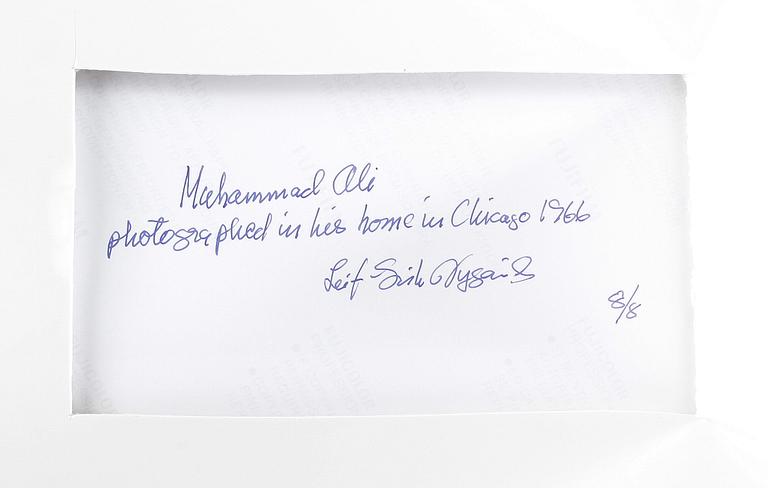 Muhammad Ali
photographed in his home in Chicago 1966
Leif
8/8